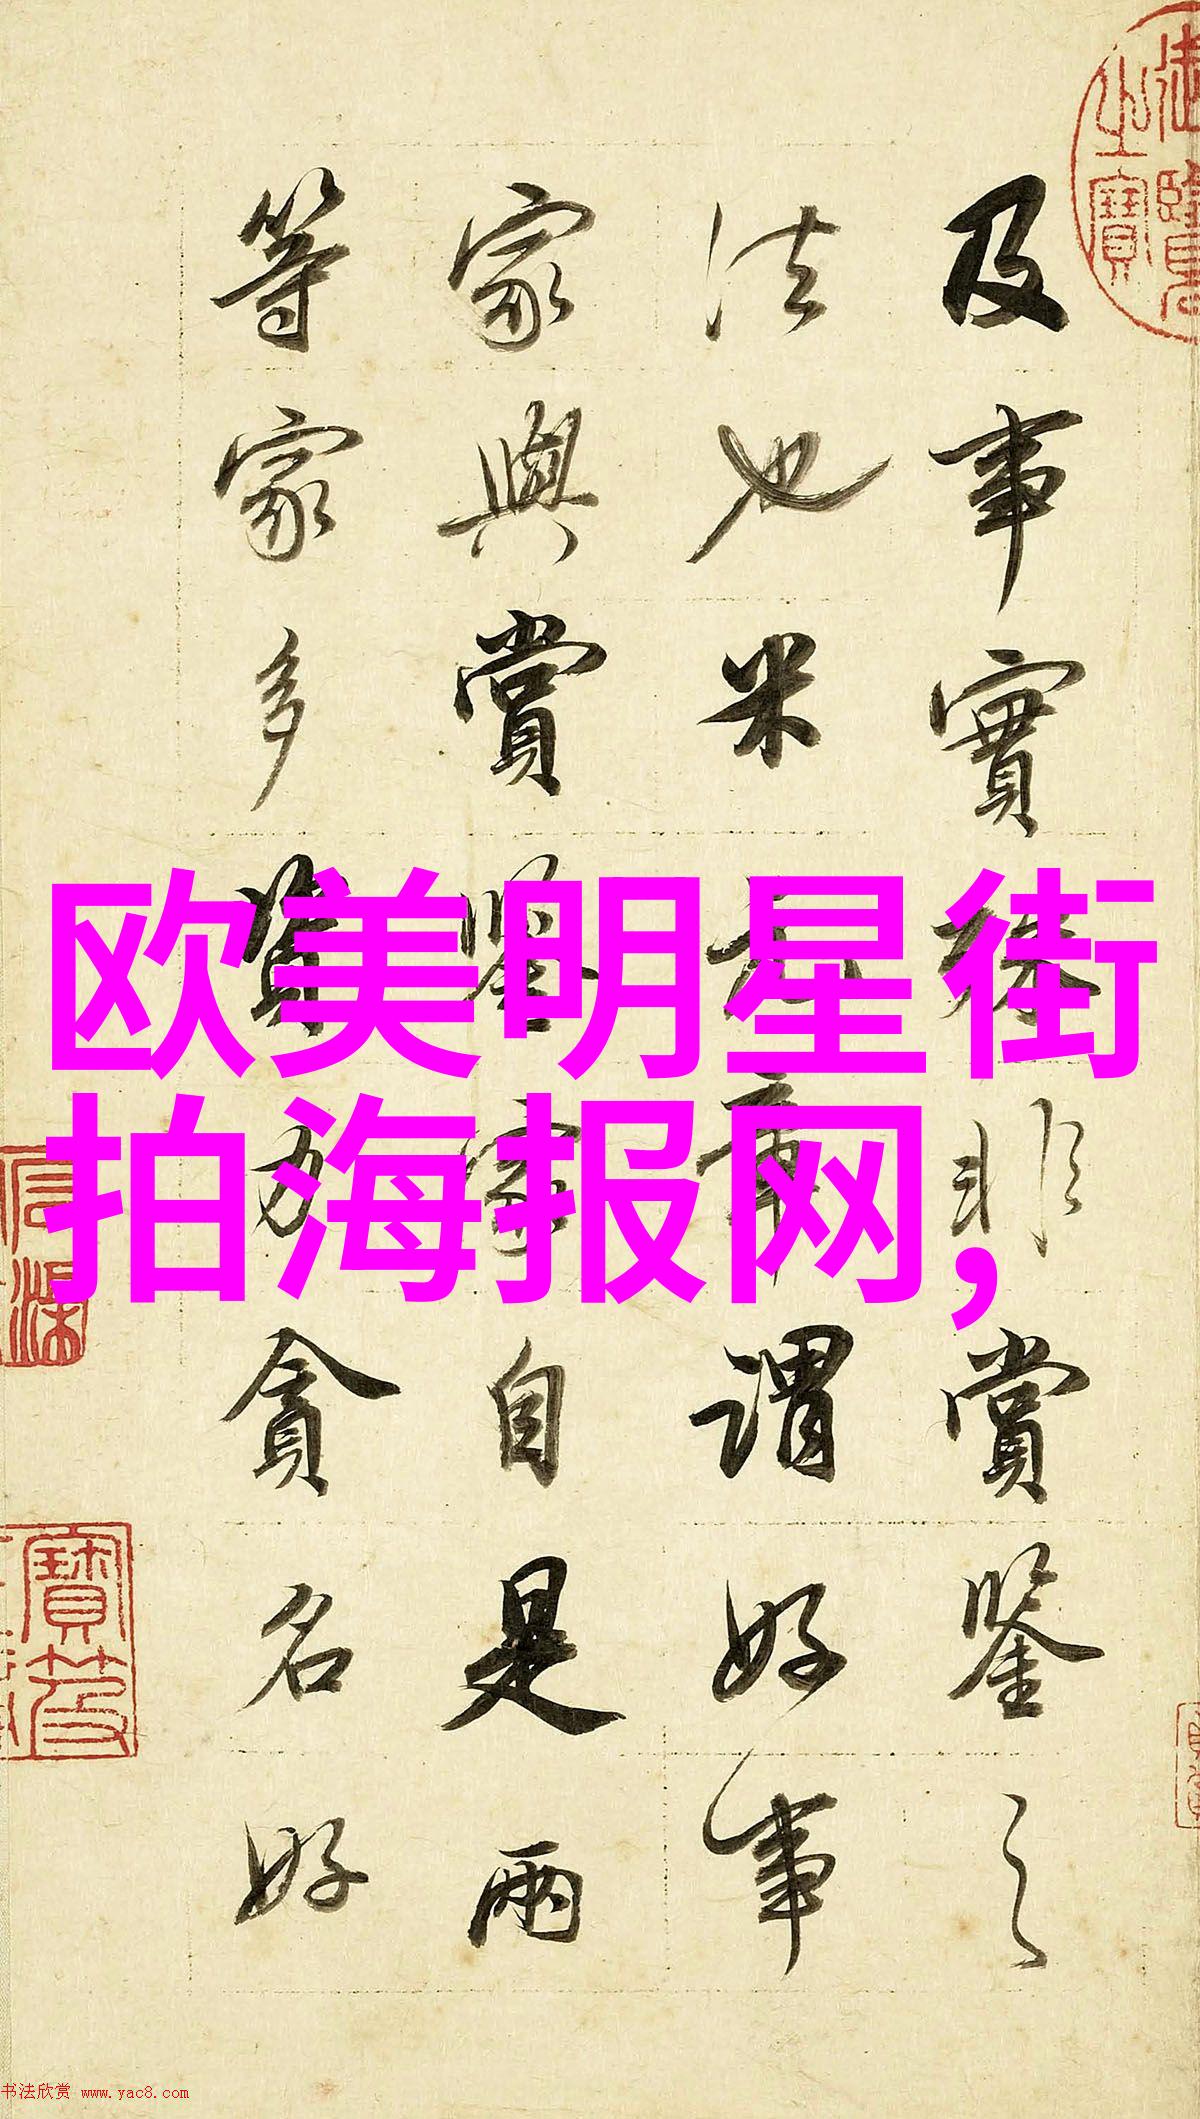 及事實殊非賞鑒之
法也米元章謂好事
家與賞鑒家自是兩
等家多資力貪名好
欧美明星街
拍海报网,
书法欣赏 www.yac8.com